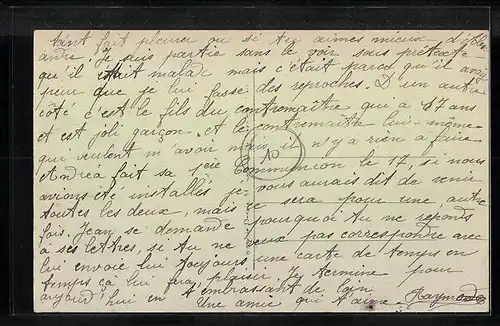 tant fait pleurer ou si tu aimes mieux d'Alex
andre. Je suis partie sans le voir sous prétexte
qu'il était malade mais c'était parce qu'il avait
peur que je lui fasse des reproches. D'un autre
côté c'est le fils du contremaître qui a 17 ans
et est joli garçon et le contremaître lui-même
qui veulent m'avoir mais il n'y a rien à faire
Andréa fait sa 1ère Communion le 17, si nous
avions été installés je vous aurais dit de venir
toutes les deux, mais ce sera pour une autre
fois. Jean se demande pourquoi tu ne réponds
à ses lettres, si tu ne veux pas correspondre avec
lui envoie lui toujours une carte de temps en
temps ça lui fera plaisir. Je termine pour
aujourd'hui en t'embrassant de loin
Une amie qui t'aime Raymonde
10